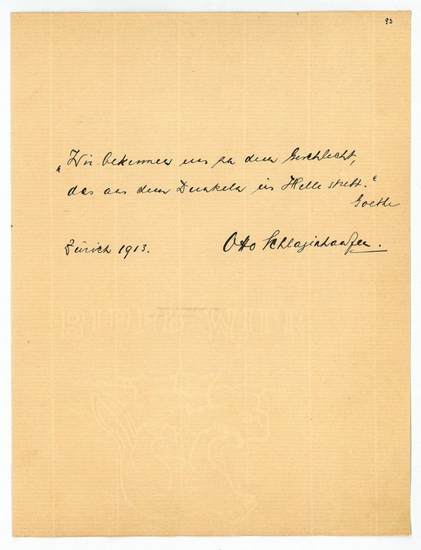 93
„Wir bekennen uns zu dem Geschlecht,
das aus dem Dunkeln ins Helle strebt.“
Goethe
Zürich 1913.
Otto Schlaginhaufen.